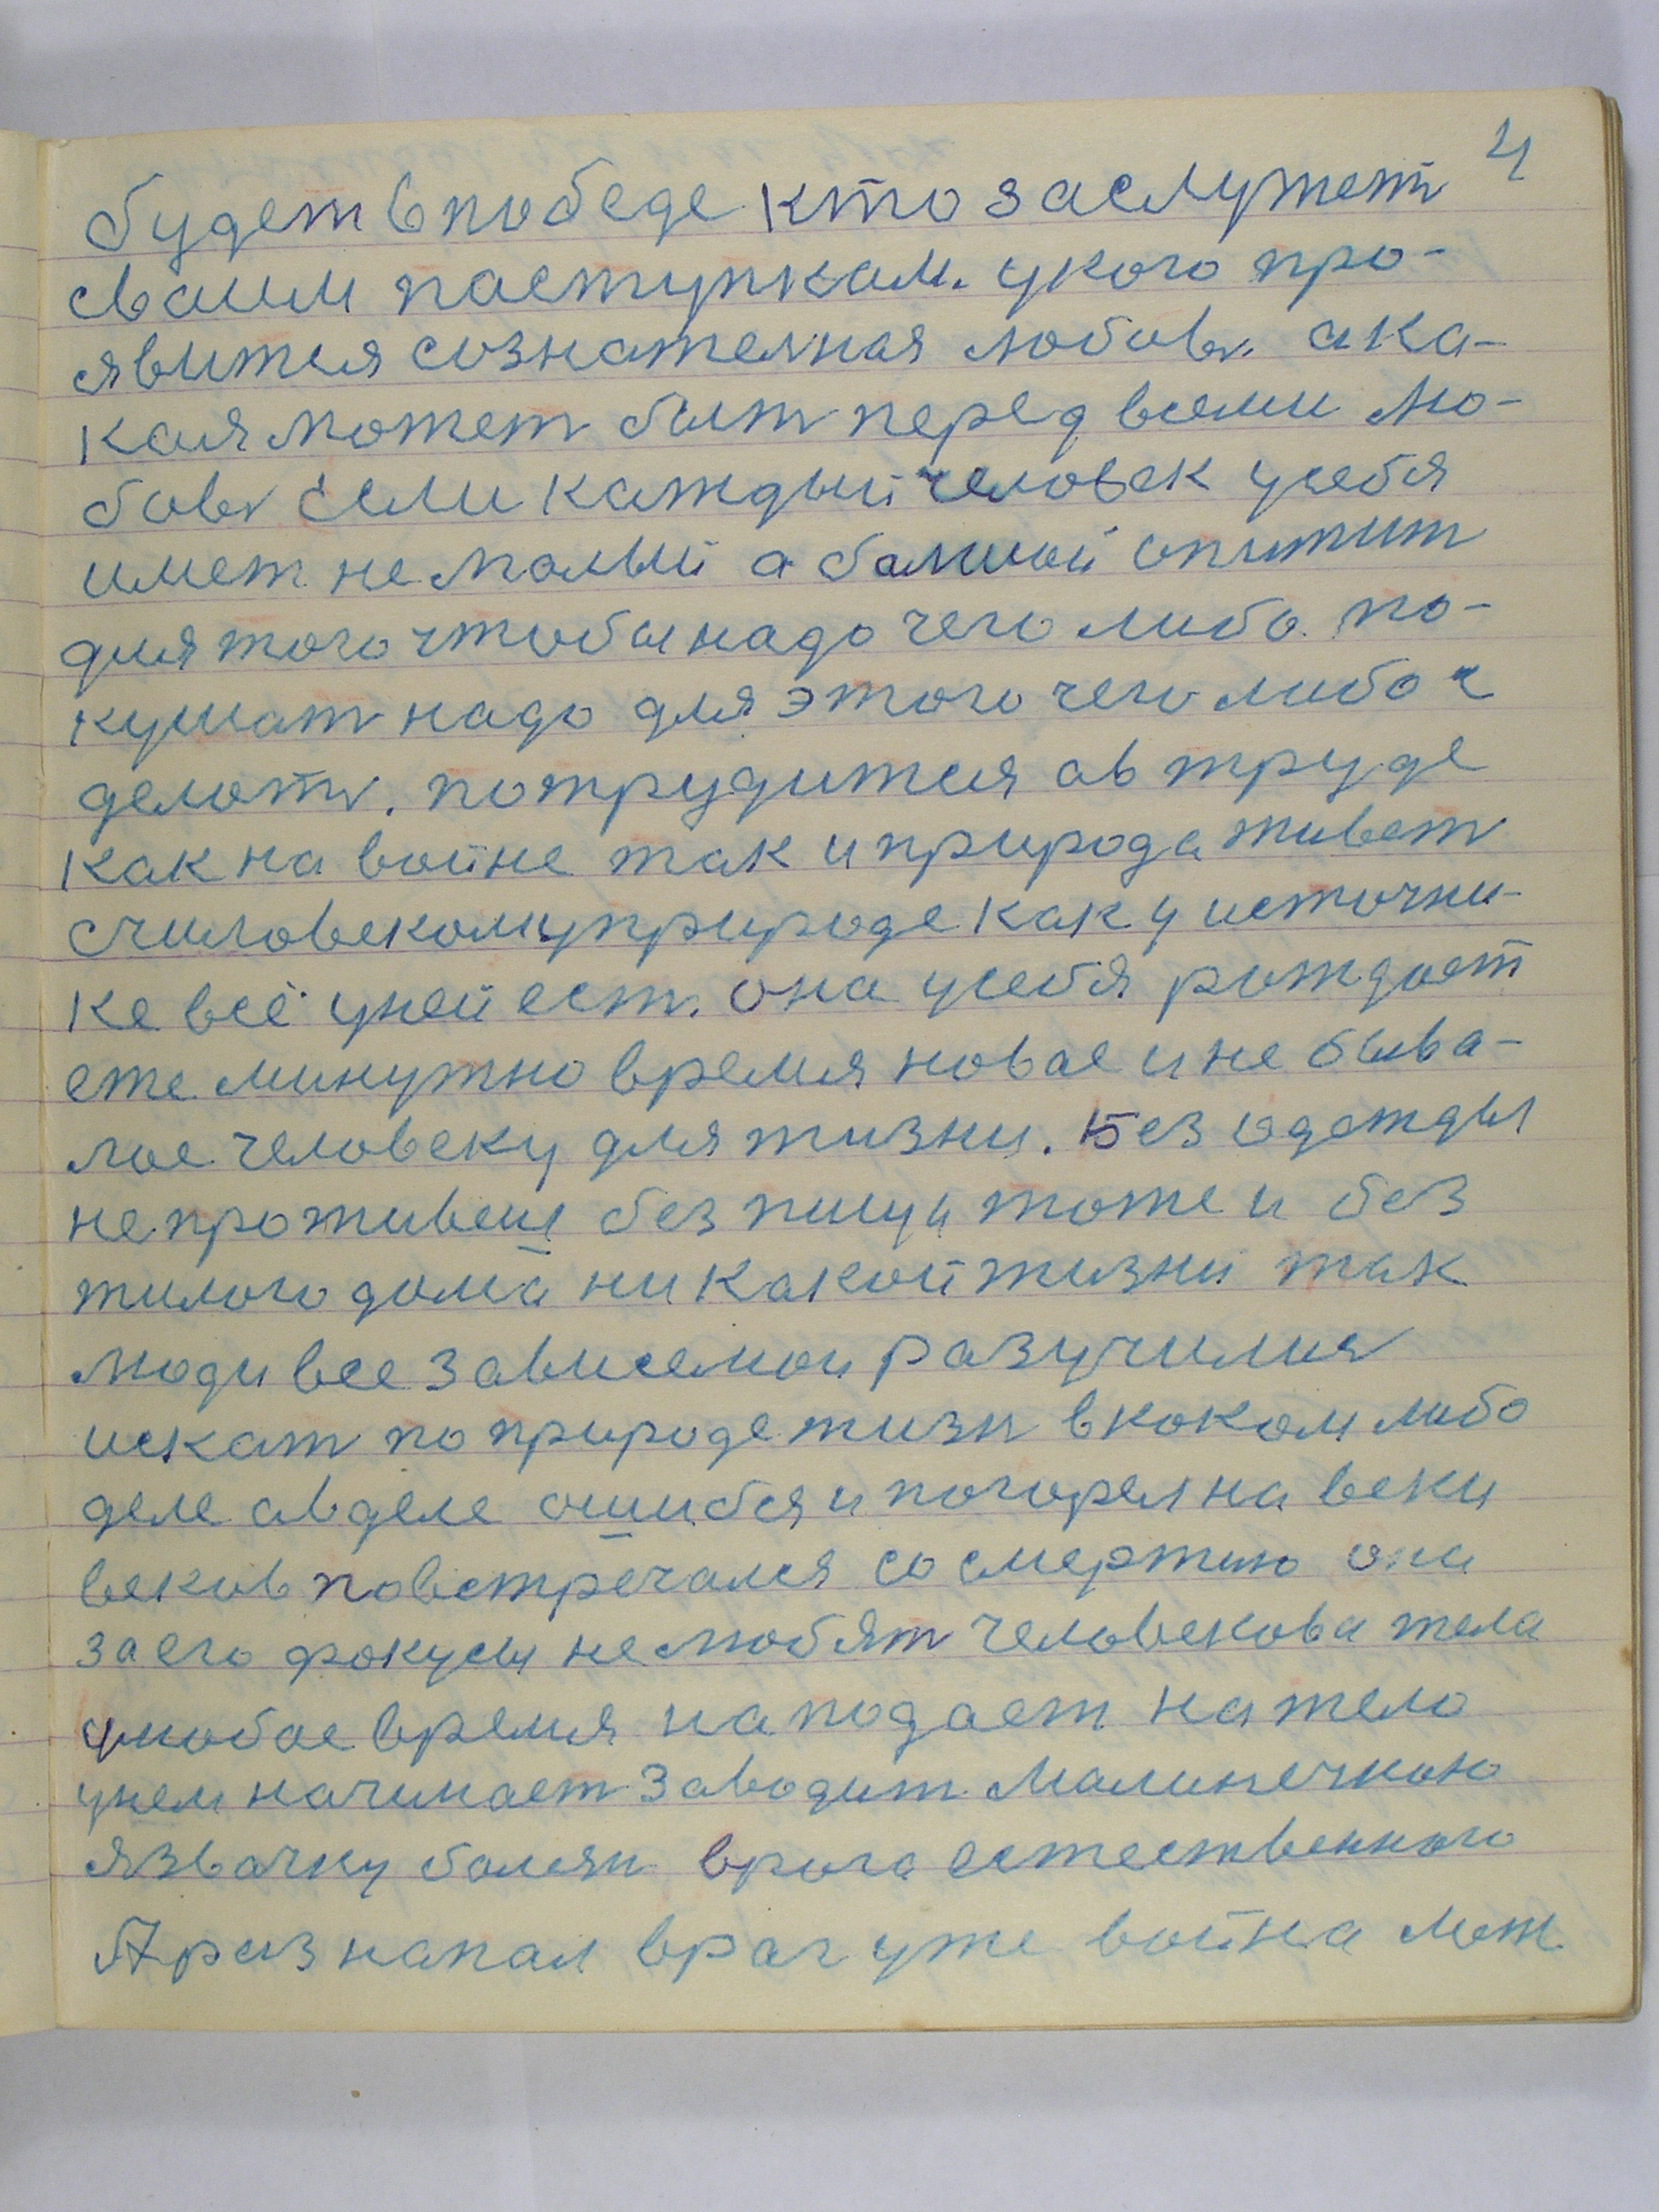 4
будет в победе кто заслужет
сваим паступкам. у кого про-
явится сознателная любовь. а ка-
кая может быт перед всеми лю-
бовь если каждый человек у себя
имет не малый а балшой опитит
для того чтобы надо чего либо по-
кушат надо для этого чего либо
делоть. потрудится а в труде
как на войне так и природа живет
с чиловеком у природе как у источни-
ке всё у ней ест. она у себя рождает
еже минутно время новае и не быва-
лое человеку для жизни. Без одежды
не проживеш без пищи тоже и без
жилого дома ни какой жизни так
люди все зависемои разучился
искат по природе жизн в коком либо
деле а в деле ошибся и погорел на веки
веков повстречался со смертию они
за его фокусы не любят человекова тела
у любое время наподает на тело
у нем начинает заводит малинечкою
язвачку балячи врага естественного
А раз напал враг уже война меж